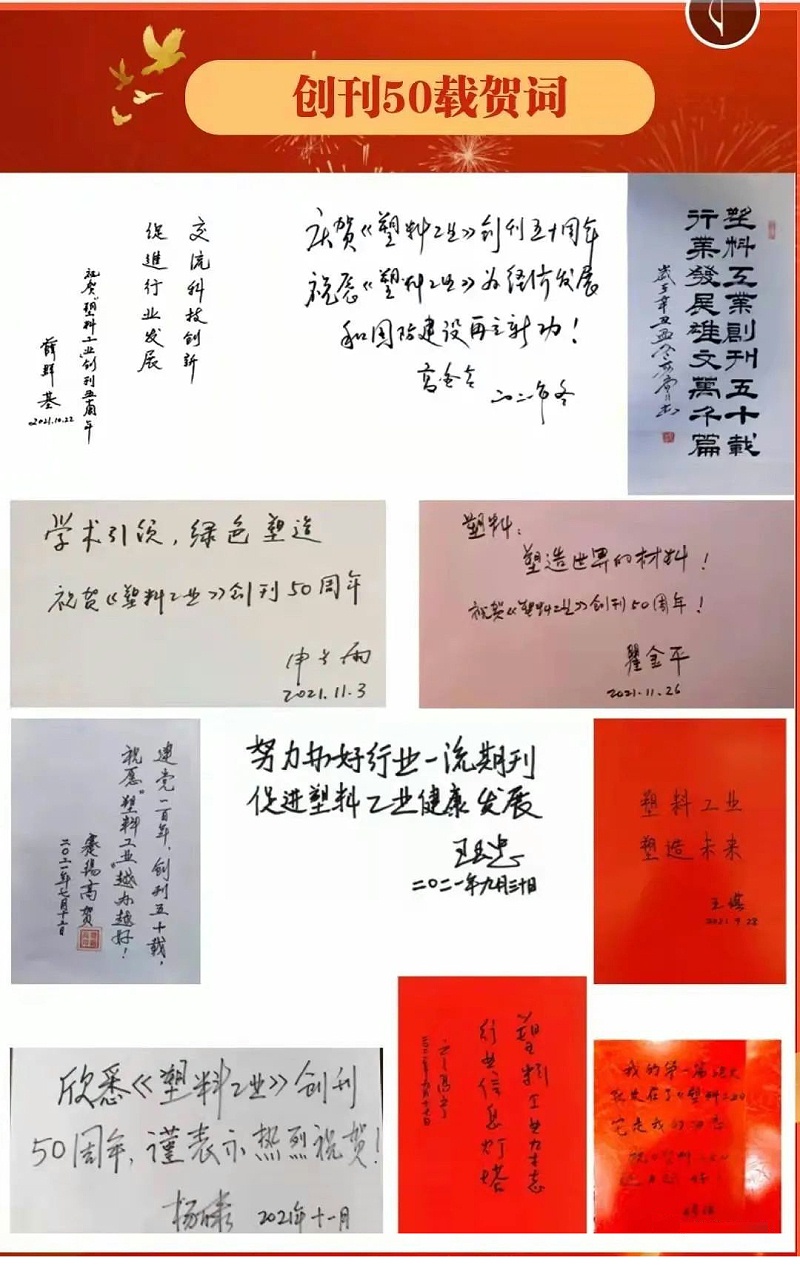 创刊50载贺词
交流科技创新
促進行业发展
祝贺“塑料工业”创刊五十周年
薛群基
2021.10.22
庆贺《塑料工业》创刊五十周年
祝愿《塑料工业》为经济发展
和国防建设再立新功！
二〇二一年冬
塑料工业創刊五十载
行業發展雄文萬千篇
学术引领，绿色塑造
祝贺《塑料工业》创刊50周年
2021.11.3
塑料：
塑造世界的材料！
祝贺《塑料工业》创刊50周年！
瞿金平
2021.11.26
建党一百年，创刊五十载，
祝愿“塑料工业”越办越好！
蹇锡高贺
二〇二一年七月十三日
努力办好行业一流期刊
促进塑料工业健康发展
王玉忠
二〇二一年九月三十日
塑料工业
塑造未来
王琪
2021.9.28
欣悉《塑料工业》创刊
50周年，谨表示热烈祝贺！
2021年十一月
行业信息灯塔
我的第一篇论文
就发在了《塑料工业》
它是我的